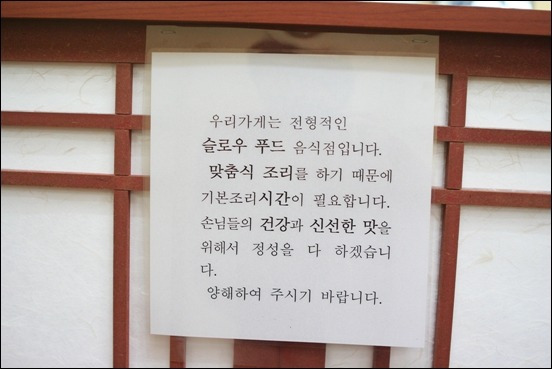 우리가게는 전형적인
슬로우 푸드 음식점입니다.
맞춤식 조리를 하기 때문에
기본조리시간이 필요합니다.
손님들의 건강과 신선한 맛을
위해서 정성을 다 하겠습니
다.
양해하여 주시기 바랍니다.